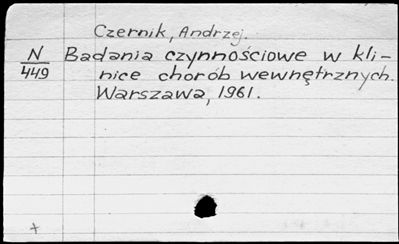 Czernik, Andrzej.
N
449
Badania czynnościowe w kli-
nice chorób wewnętrznych.
Warszawa, 1961.
+